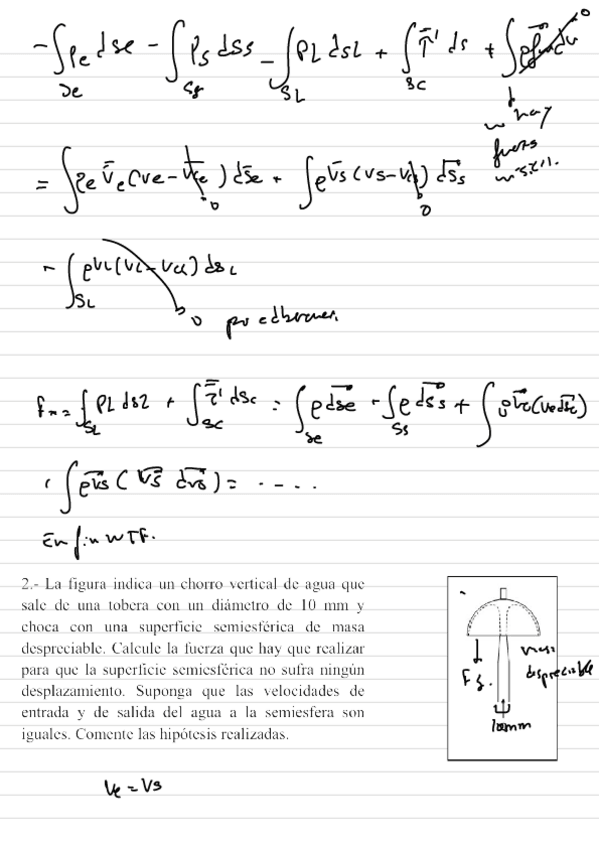 - ∫ Pe dse - ∫ Ps dss - ∫ PL dsL + ∫ τ̄' ds + ∫ ρ dv 0
se ss SL sc
hay
= ∫ ρe v̄e (ve - vce) ds̄e + ∫ ρ v̄s (vs - vc) ds̄s
0 0
- ∫ ρ vL (vL - vcL) dsL
SL 0
∫ PL dsL + ∫ τ̄' dsc = ∫ ρ ds̄e - ∫ ρ ds̄s +
SL sc se ss
∫ ρ v̄s ( v̄s ) = . - - . .
En fin WTF.
2.- La figura indica un chorro vertical de agua que
sale de una tobera con un diámetro de 10 mm y
choca con una superficie semiesférica de masa
despreciable. Calcule la fuerza que hay que realizar
para que la superficie semiesférica no sufra ningún
desplazamiento. Suponga que las velocidades de
entrada y de salida del agua a la semiesfera son
iguales. Comente las hipótesis realizadas.
masa
despreciable
10mm
Ve = Vs